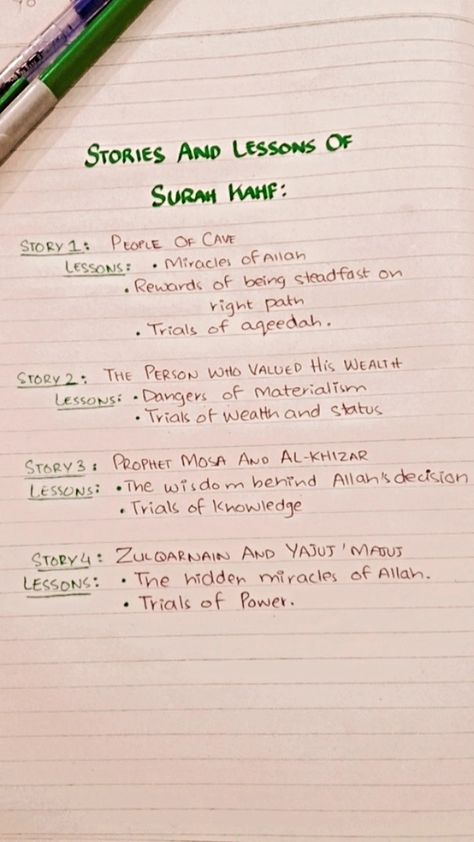 STORIES AND LESSONS OF
SURAH KAHF:
STORY 1: PEOPLE OF CAVE
LESSONS: • Miracles of Allah
• Rewards of being steadfast on
right path
• Trials of aqeedah.
STORY 2: THE PERSON WHO VALUED HIS WEALTH
LESSONS: • Dangers of Materialism
• Trials of Wealth and Status
STORY 3: PROPHET MOSA AND AL-KHIZAR
LESSONS: • The wisdom behind Allah's decision
• Trials of Knowledge
STORY 4: ZULQARNAIN AND YAJUJ' MAJUJ
LESSONS: • The hidden miracles of Allah.
• Trials of Power.